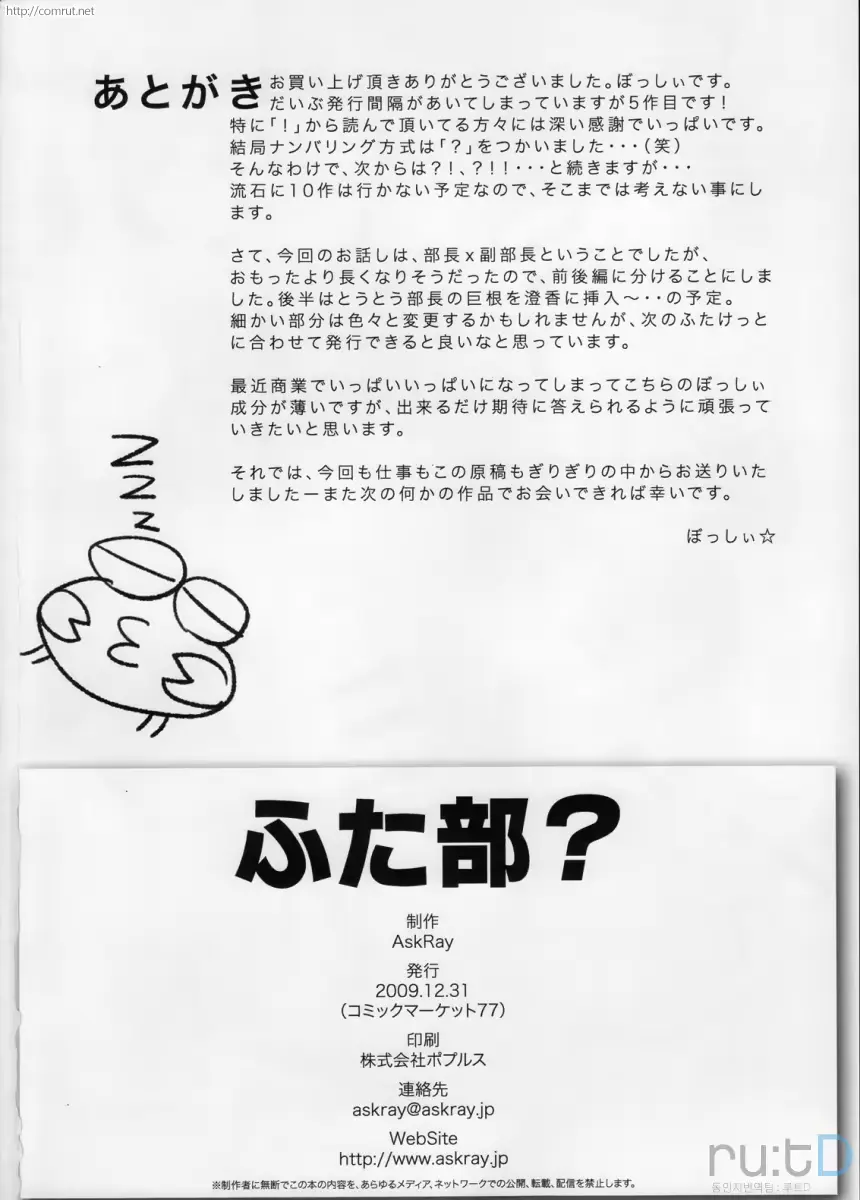 http://comrut.net
あとがき
お買い上げ頂きありがとうございました。ぼっしぃです。
だいぶ発行間隔があいてしまっていますが5作目です！
特に「！」から読んで頂いてる方々には深い感謝でいっぱいです。
結局ナンバリング方式は「？」をつかいました・・・（笑）
そんなわけで、次からは?！、?！！・・・と続きますが・・・
流石に10作は行かない予定なので、そこまでは考えない事にし
ます。
さて、今回のお話しは、部長x副部長ということでしたが、
おもったより長くなりそうだったので、前後編に分けることにしま
した。後半はとうとう部長の巨根を澄香に挿入～・・の予定。
細かい部分は色々と変更するかもしれませんが、次のふたけっと
に合わせて発行できると良いなと思っています。
最近商業でいっぱいいっぱいになってしまってこちらのぼっしぃ
成分が薄いですが、出来るだけ期待に答えられるように頑張って
いきたいと思います。
それでは、今回も仕事もこの原稿もぎりぎりの中からお送りいた
しましたーまた次の何かの作品でお会いできれば幸いです。
ぼっしぃ☆
zzz
ふた部？
制作
AskRay
発行
2009.12.31
（コミックマーケット77）
印刷
株式会社ポプルス
連絡先
askray@askray.jp
WebSite
http://www.askray.jp
※制作者に無断でこの本の内容を、あらゆるメディア、ネットワークでの公開、転載、配信を禁止します。
ru:tD
동인지번역팀 : 루트D